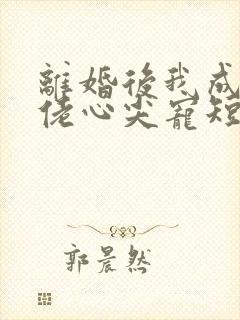 離婚後我成
佬心尖寵短
郭晨然